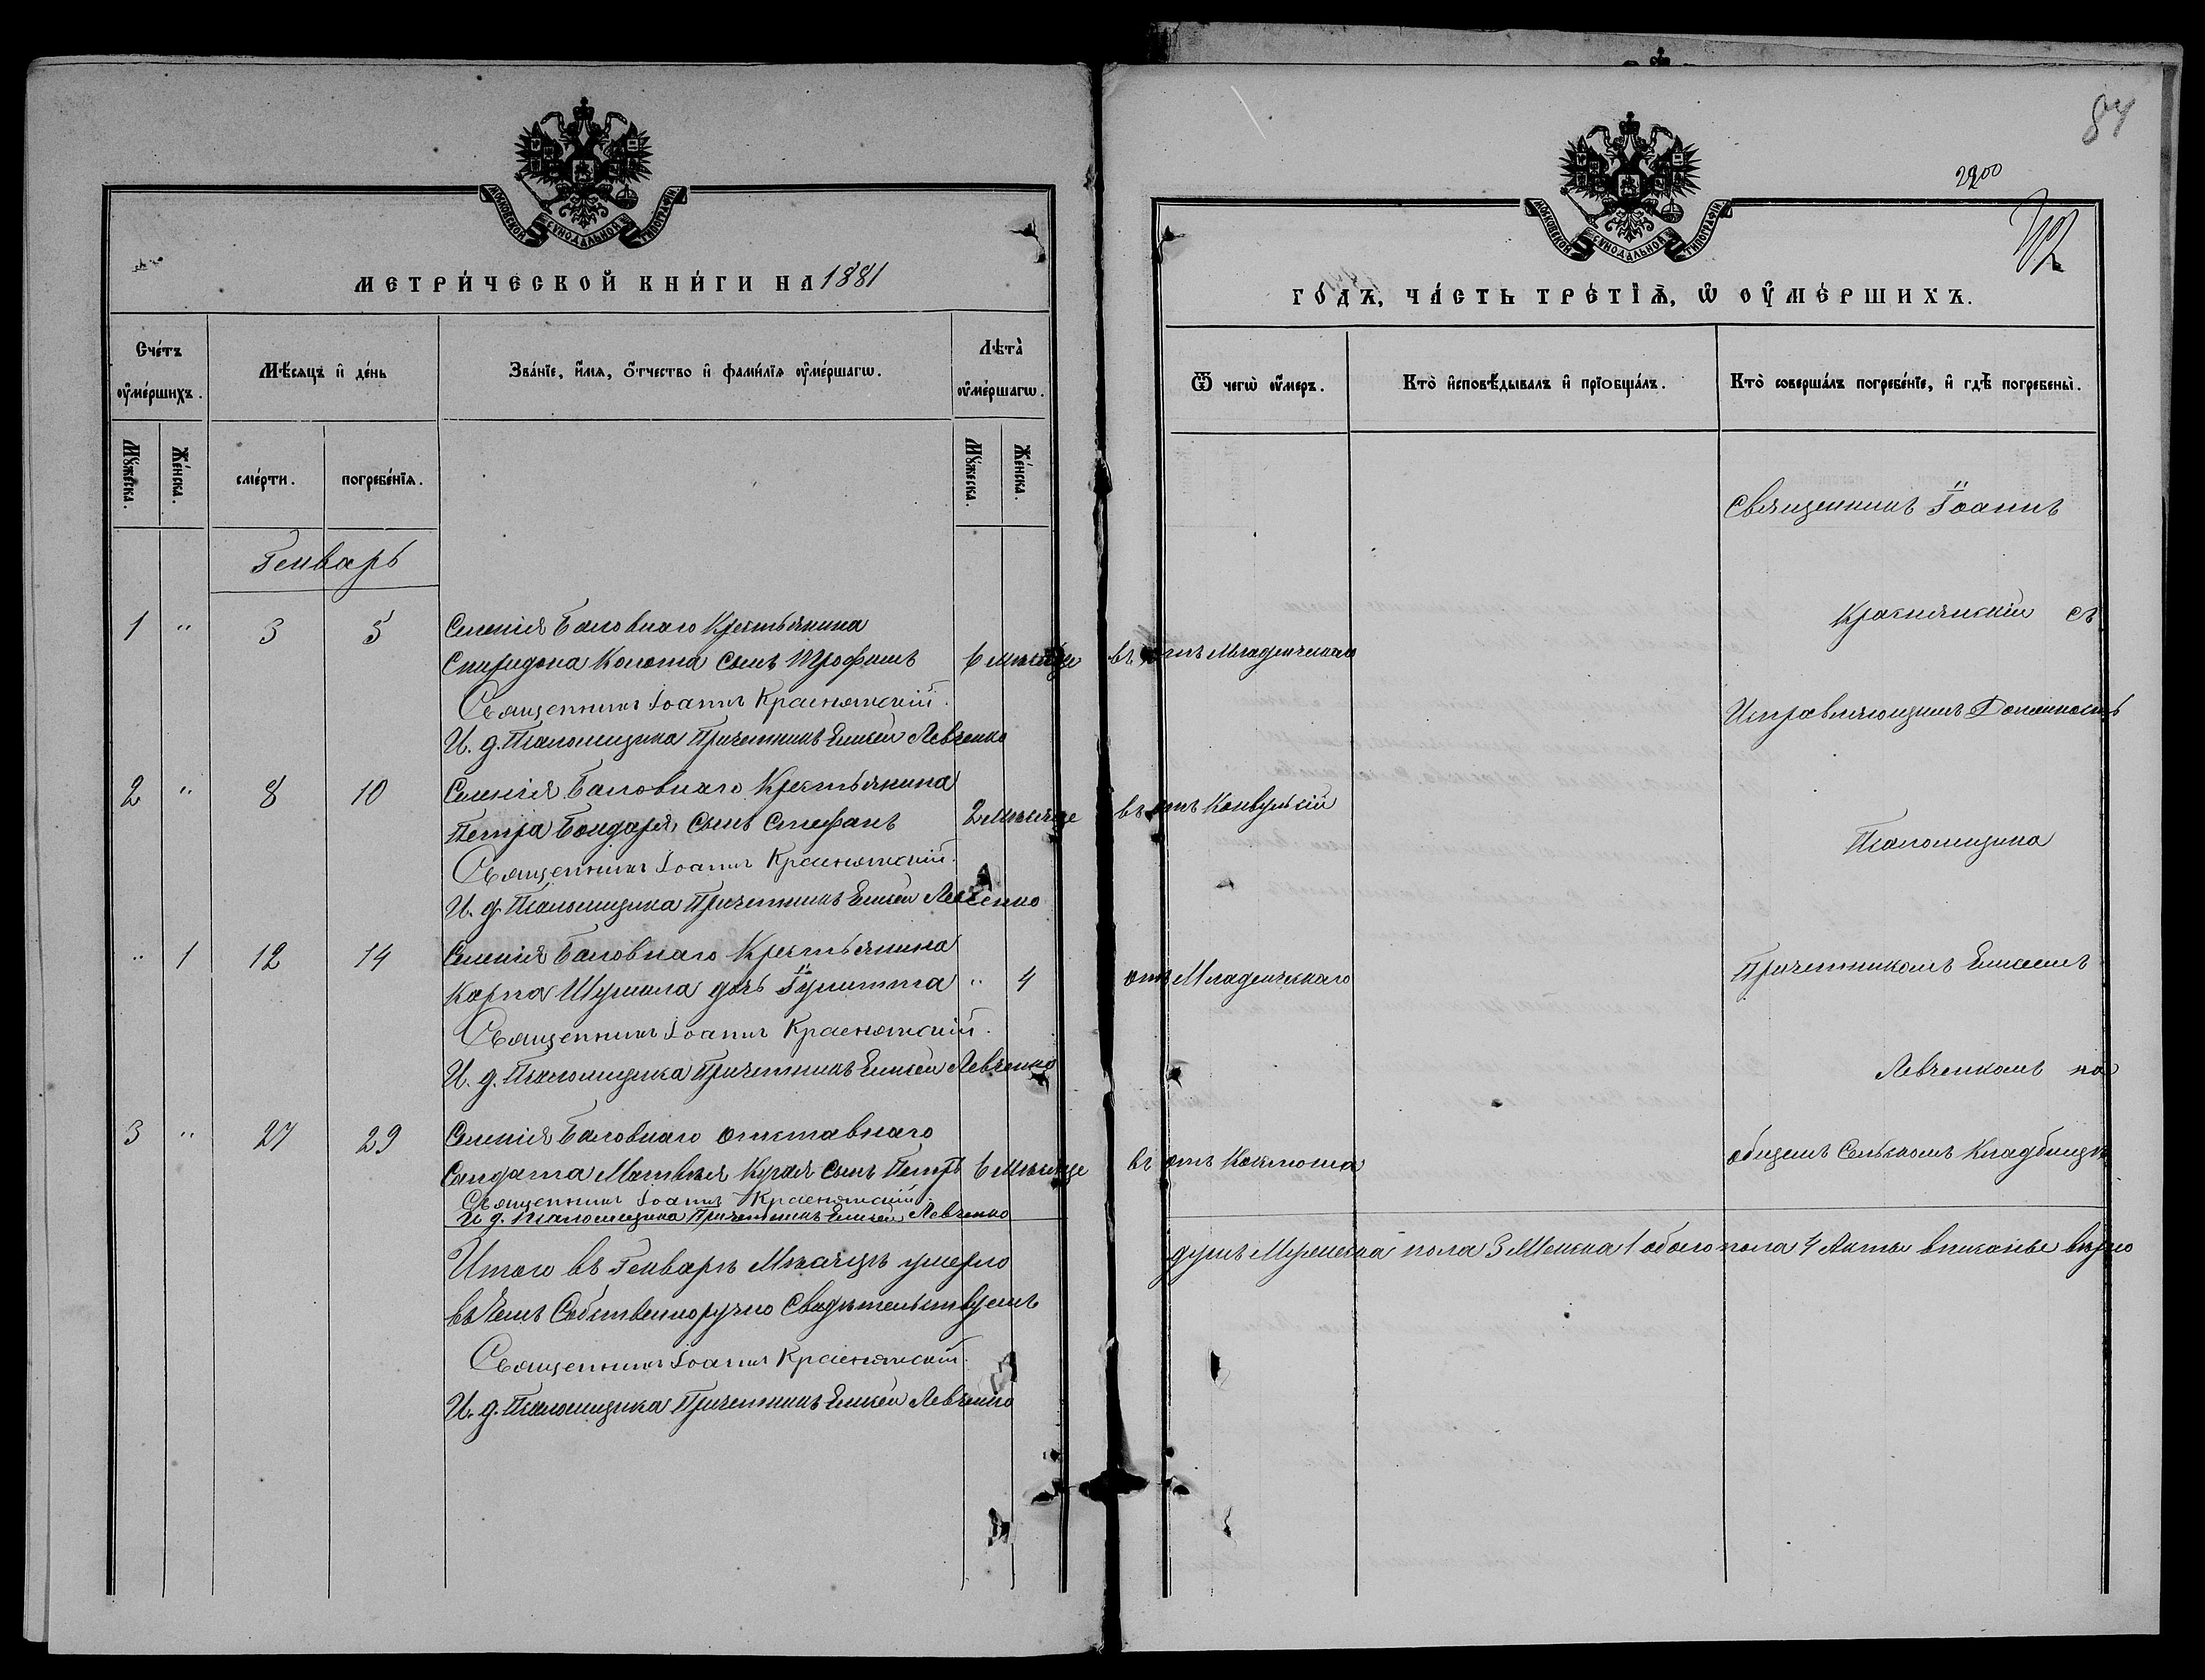 МОСКОВСКОЙ СѴНОДАЛЬНОЙ ТИПОГРАФІИ
МЕТРИ́ЧЕСКОЙ КНИ́ГИ НА 1881
Сче́тъ ᲂу҆ме́ршихъ.
Мѣ́сяцъ и҆ де́нь
Зва́нїе, и҆́мѧ, ѻ҆́тчество и҆ фами́лїѧ ᲂу҆ме́ршагѡ.
Лѣта̀ ᲂу҆ме́ршагѡ.
Мꙋ́жеска.
Же́нска.
сме́рти.
погребе́нїѧ.
Мꙋ́жеска.
Же́нска.
Генварь
1 " 3 5 Селенія Баловнаго Крестьянина
Спиридона Колота сынъ Трофимъ 6 мѣсяце
Священникъ Іоаннъ Краснянскій.
И. д. Псаломщика Причетникъ Елисей Левченко
2 " 8 10 Селенія Баловнаго Крестьянина
Петра Бондаря, сынъ Стефанъ 2 мѣсяце
Священникъ Іоаннъ Краснянскій.
И. д. Псаломщика Причетникъ Елисей Левченко
" 1 12 14 Селенія Баловнаго Крестьянина
Карпа дочь Іулитта " 4
Священникъ Іоаннъ Краснянскій.
И. д. Псаломщика Причетникъ Елисей Левченко
3 " 27 29 Селенія Баловнаго отставнаго
Солдата Матвѣя Кугая сынъ Петръ 6 мѣсяце
Священникъ Іоаннъ Краснянскій.
И. д. Псаломщика Причетникъ Елисей Левченко
Итого въ Генварѣ Мѣсяцѣ умерло
въ чемъ Собственноручно Свидѣтельствуемъ
Священникъ Іоаннъ Краснянскій.
И. д. Псаломщика Причетникъ Елисей Левченко
84
2200
МОСКОВСКОЙ СѴНОДАЛЬНОЙ ТИПОГРАФІИ
ГО́ДЪ, ЧА́СТЬ ТРЕ́ТЇѦ, Ѡ҆ ОУ҆МЕ́РШИХЪ.
Ѿ чегѡ̀ ᲂу҆́меръ.
Кто̀ и҆сповѣ́дывалъ и҆ прїобща́лъ.
Кто̀ соверша́лъ погребе́нїе, и҆ гдѣ̀ погребены̀.
Священникъ Іоаннъ
Краснянскій съ
въ отъ Младенческаго
Исправляющимъ Должность
въ отъ Конвульсій
Псаломщика
отъ Младенческаго
Причетникомъ Елисеемъ
Левченкомъ на
въ отъ Коклюша
общемъ Сельскомъ Кладбищѣ
душъ Мужеска пола 3 Женска 1 обоего пола 4 Акты вписаны вѣрно